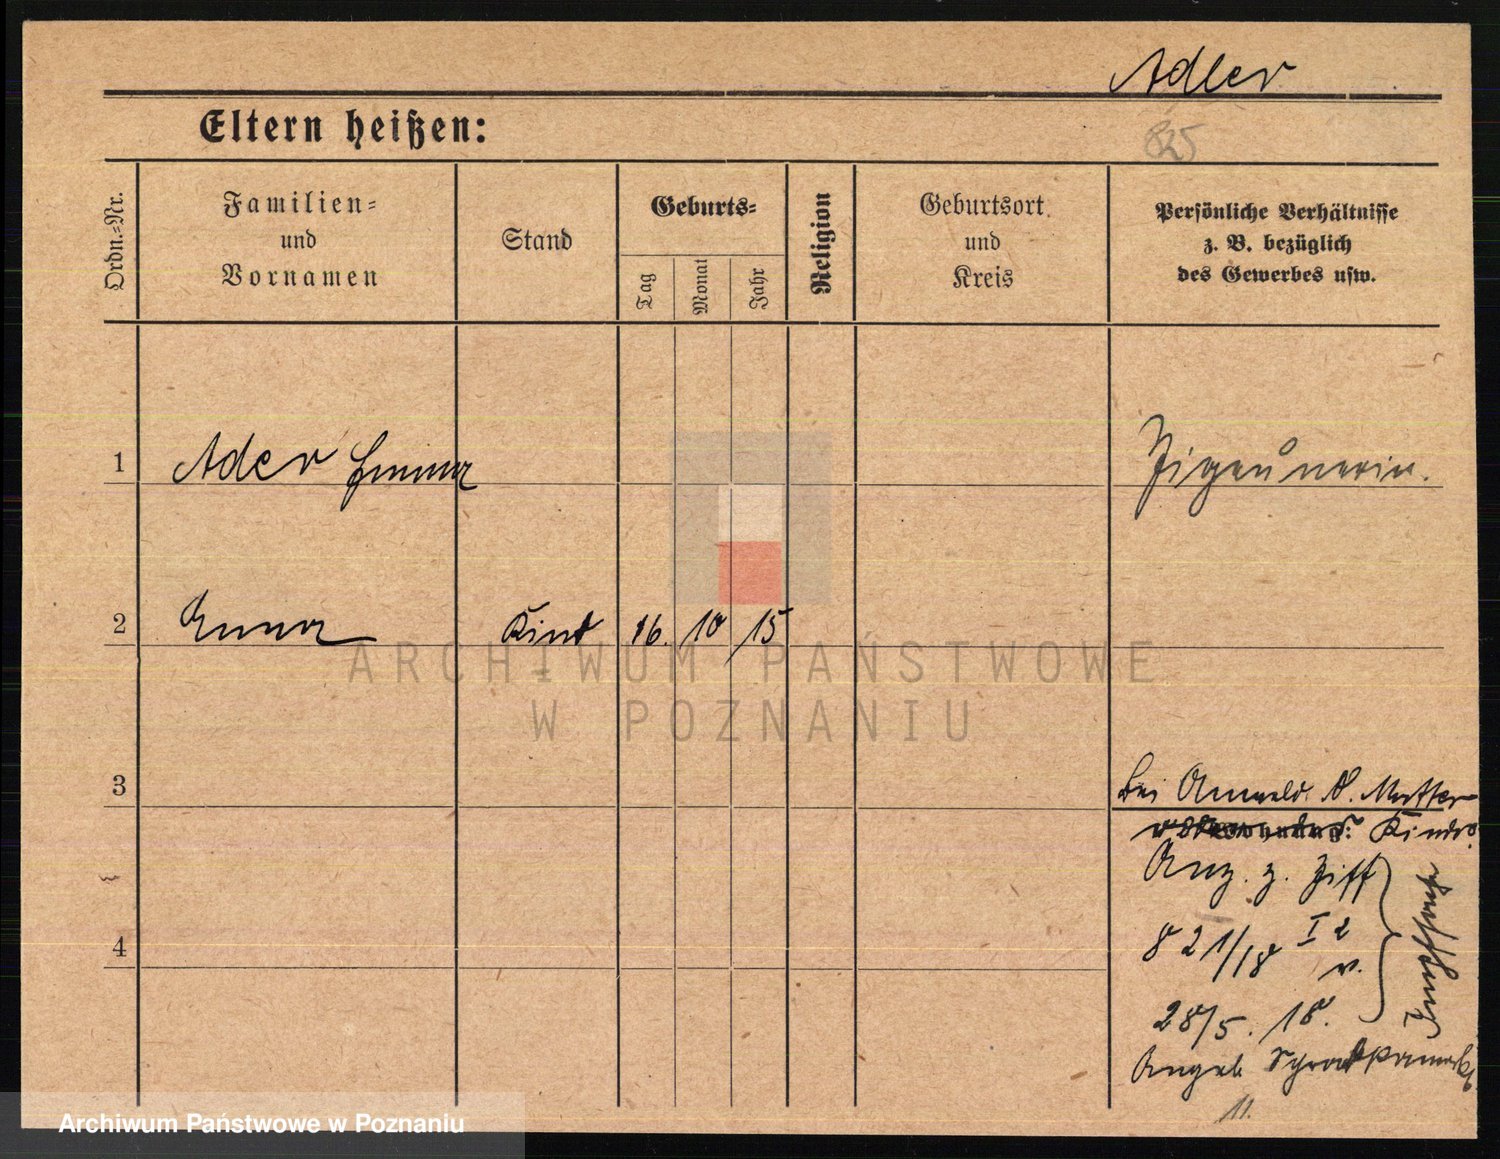 Adler
Eltern heißen:
825
Ordn.-Nr.
Familien-
und
Vornamen
Stand
Geburts-
Tag
Monat
Jahr
Religion
Geburtsort
und
Kreis
Persönliche Verhältnisse
z. B. bezüglich
des Gewerbes usw.
1
Adler Emma
Zigeunerin.
2
Anna
Kind
16.
10
15
3
bei Anmeld. d. Mutter
Kindes.
Anz. z. Ziff
4
821/18 I 2
v.
28/5. 18.
11.
ARCHIWUM PAŃSTWOWE
W POZNANIU
Archiwum Państwowe w Poznaniu